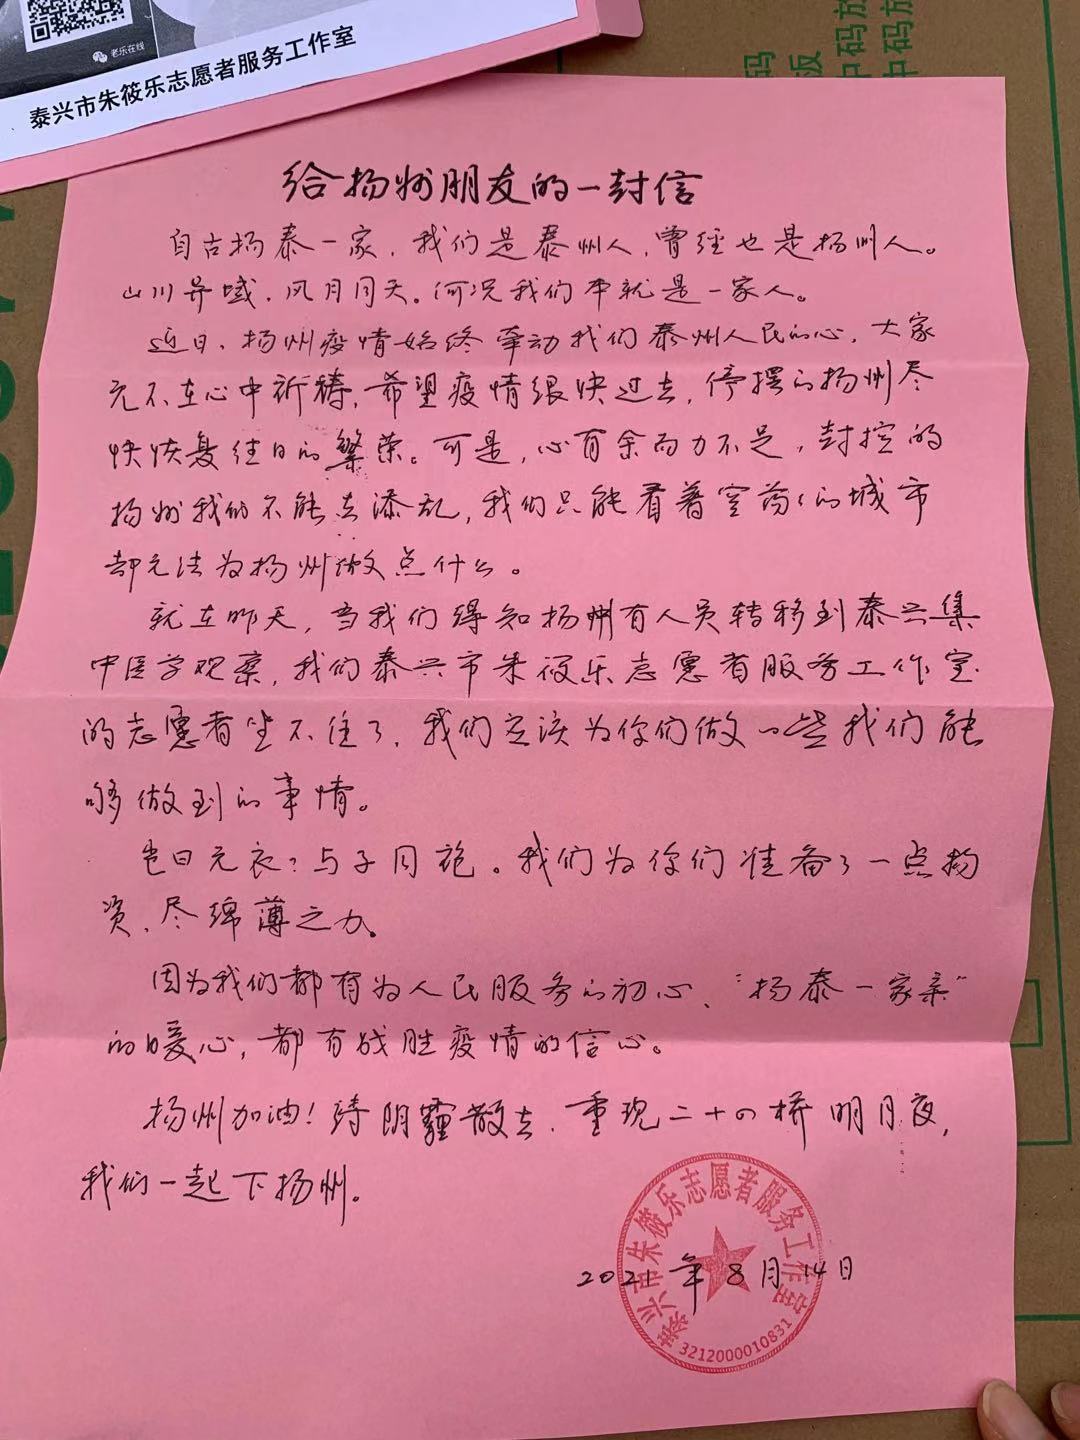 老乐在线
泰兴市朱筱乐志愿者服务工作室
码
码放
板
中码放
给扬州朋友的一封信
自古扬泰一家，我们是泰州人，曾经也是扬州人。
山川异域，风月同天。何况我们本就是一家人。
近日，扬州疫情始终牵动我们泰州人民的心，大家
无不在心中祈祷，希望疫情很快过去，停摆的扬州尽
快恢复往日的繁荣。可是，心有余而力不足，封控的
扬州我们不能去添乱，我们只能看着空荡荡的城市
却无法为扬州做点什么。
就在昨天，当我们得知扬州有人员转移到泰兴集
中医学观察，我们泰兴市朱筱乐志愿者服务工作室
的志愿者坐不住了，我们应该为你们做一些我们能
够做到的事情。
岂曰无衣？与子同袍。我们为你们准备了一点物
资，尽绵薄之力。
因为我们都有为人民服务的初心、“扬泰一家亲”
的暖心，都有战胜疫情的信心。
扬州加油！待阴霾散去，重现二十四桥明月夜，
我们一起下扬州。
2021年8月14日
泰兴市朱筱乐志愿者服务工作室
3212000010831